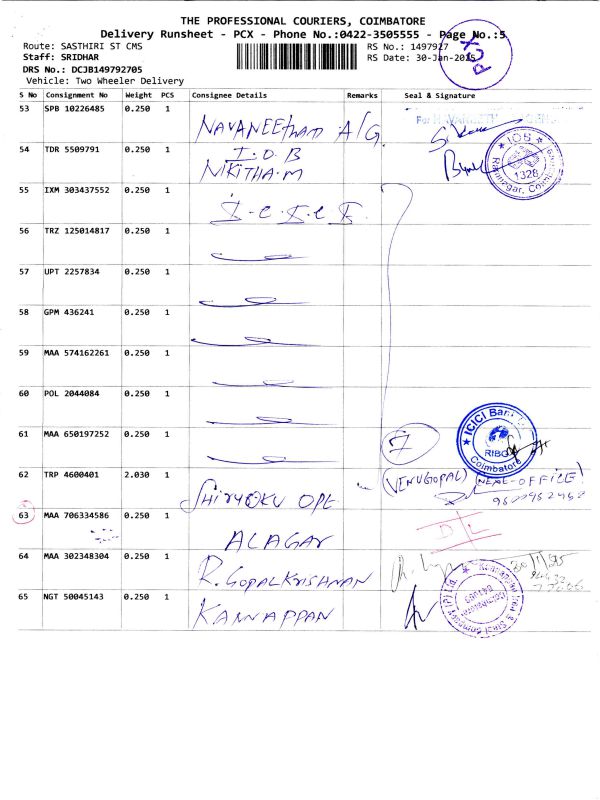 THE PROFESSIONAL COURIERS, COIMBATORE
Delivery Runsheet - PCX - Phone No.:0422-3505555 - Page No.:5
Route: SASTHIRI ST CMS
RS No.: 1497927
Staff: SRIDHAR
RS Date: 30-Jan-2025
DRS No.: DCJB149792705
Vehicle: Two Wheeler Delivery
S No Consignment No Weight PCS Consignee Details Remarks Seal & Signature
53 SPB 10226485 0.250 1 NAVANEETHAM A/G. For
54 TDR 5509791 0.250 1 I.O.B
NIKITHA.M
IOB 1328
55 IXM 303437552 0.250 1 I.C.I.C.I.
56 TRZ 125014817 0.250 1
57 UPT 2257834 0.250 1
58 GPM 436241 0.250 1
59 MAA 574162261 0.250 1
60 POL 2044084 0.250 1
61 MAA 650197252 0.250 1 7
ICICI Bank RIBG Coimbatore
62 TRP 4600401 2.030 1 SHIRYOKU OPE (VENUGOPAL)
63 MAA 706334586 0.250 1 ALAGAR D/L
64 MAA 302348304 0.250 1 R. GOPALKRISHNAN
65 NGT 50045143 0.250 1 KANNAPPAN